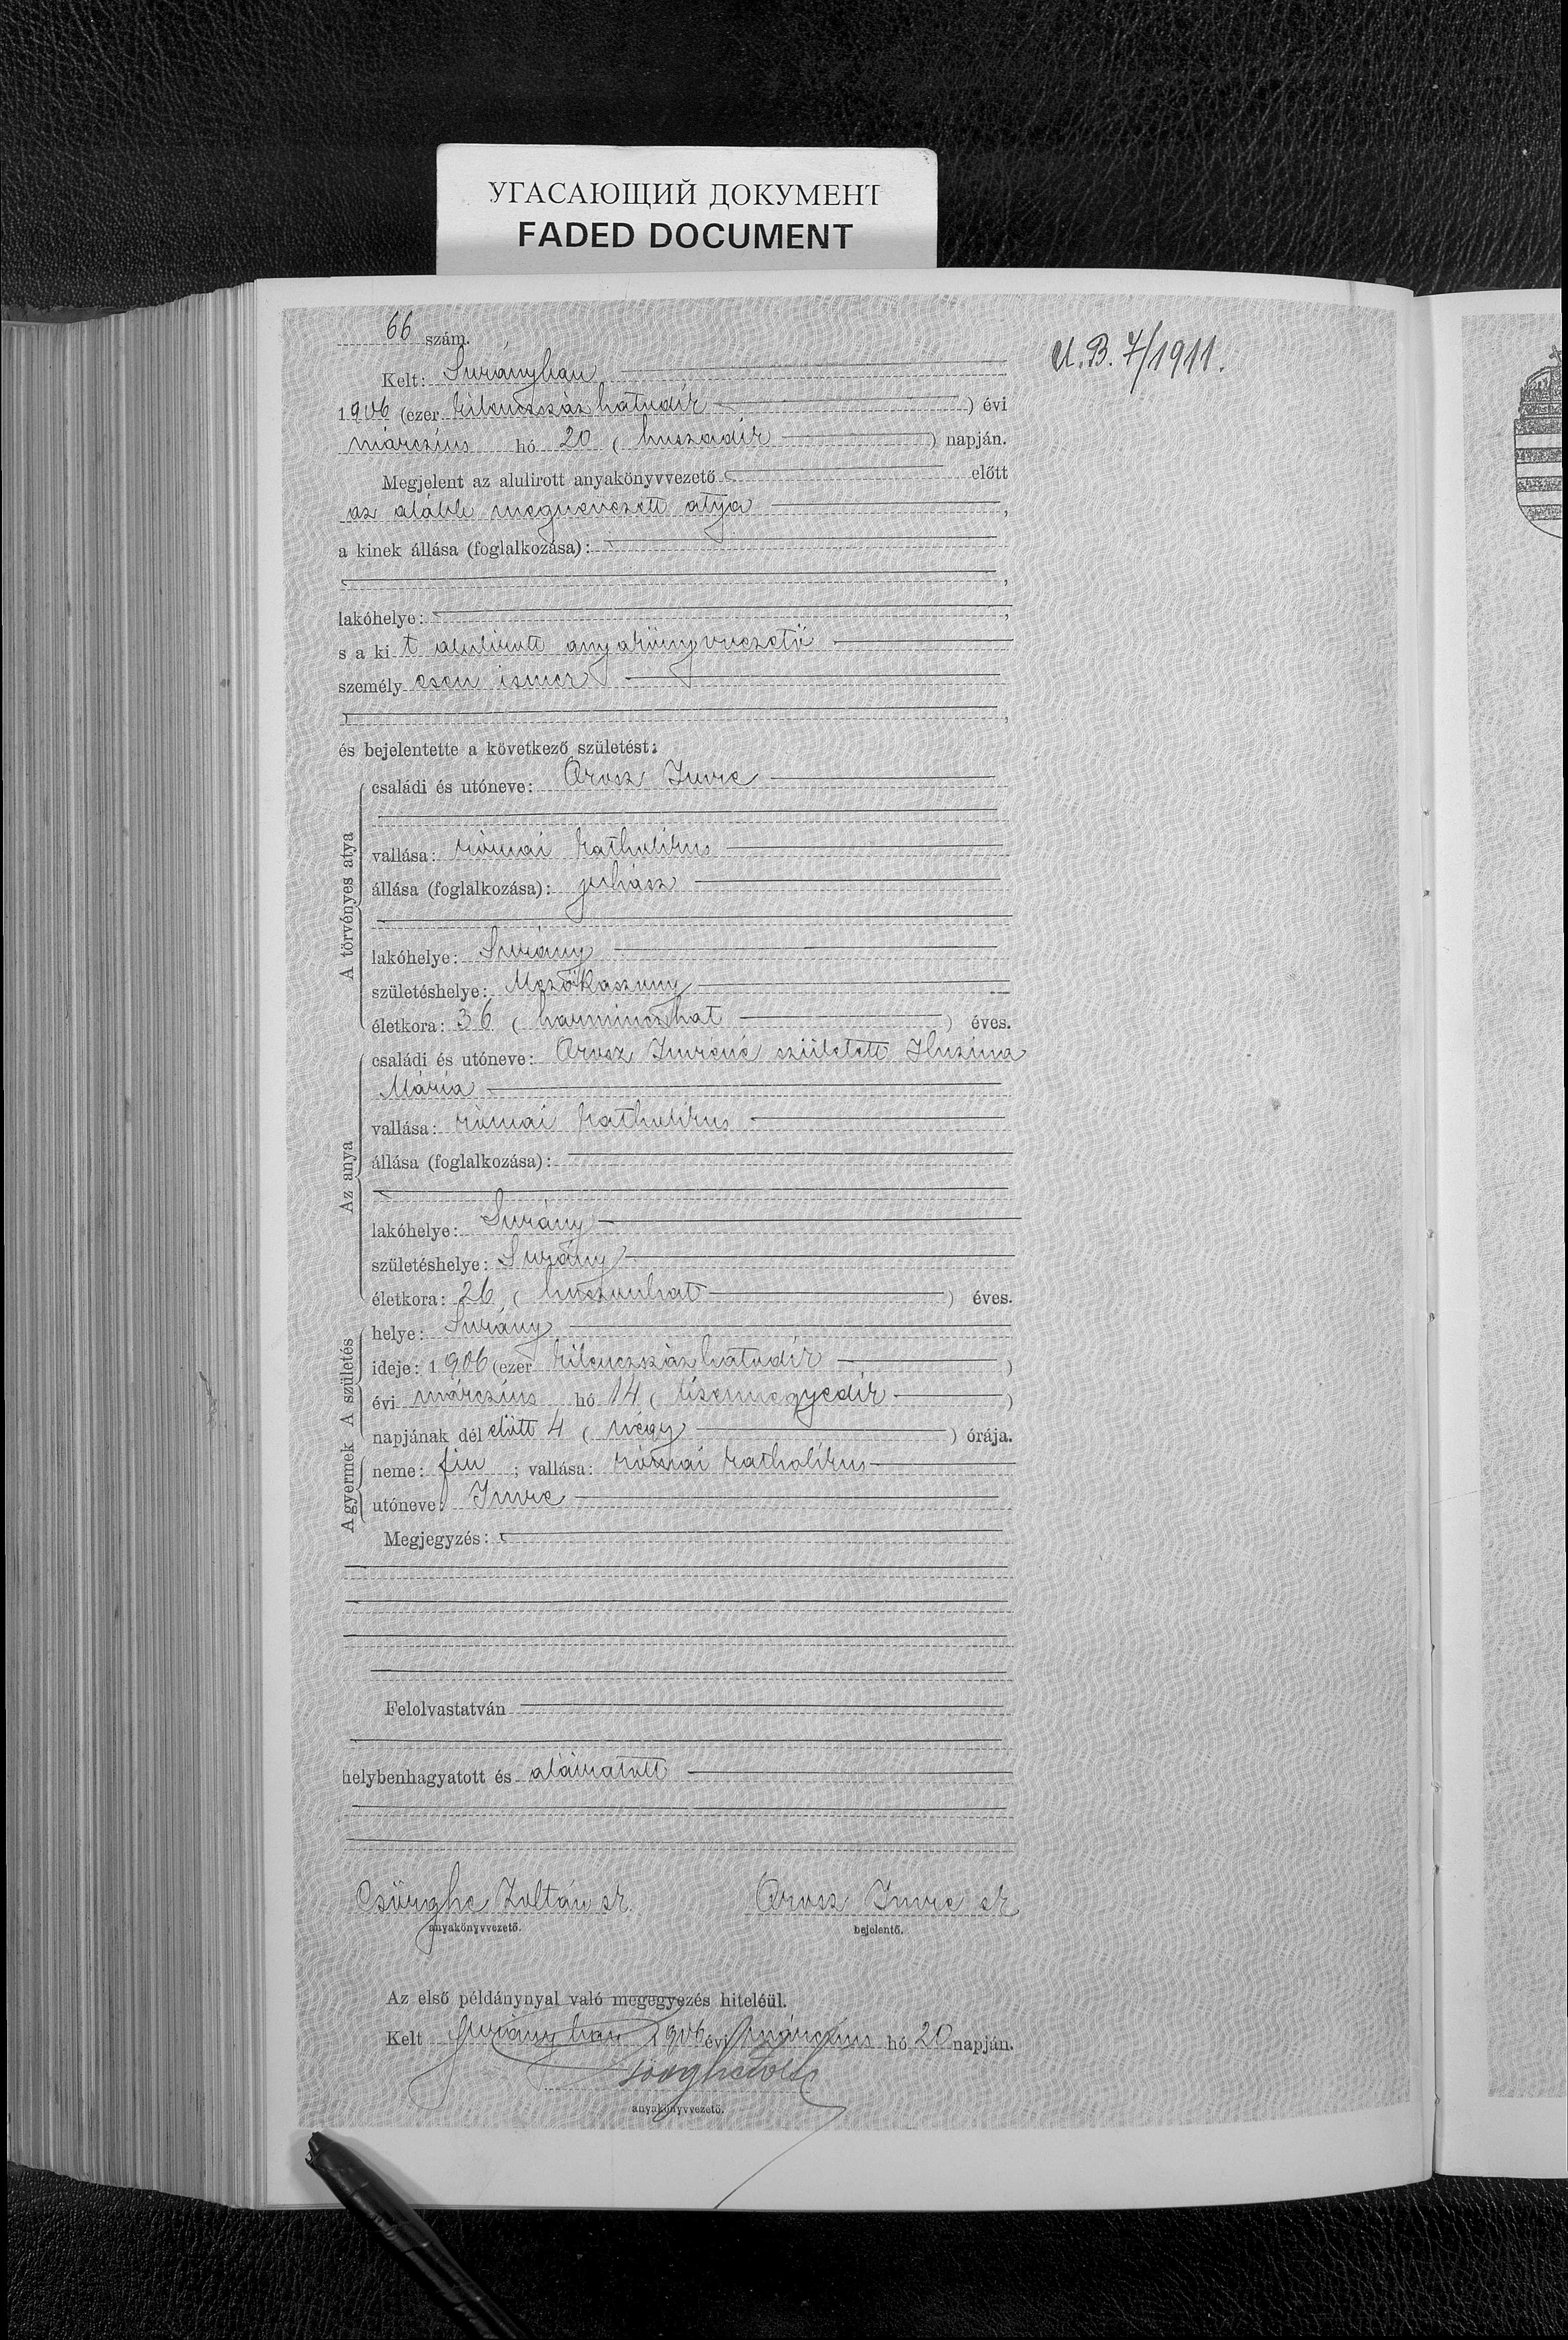 УГАСАЮЩИЙ ДОКУМЕНТ
FADED DOCUMENT
66 szám.
U. B. 7/1911.
Kelt: Surányban
1906 (ezer kilenczszázhatodik) évi
márczius hó 20 (huszadik) napján.
Megjelent az alulirott anyakönyvvezető előtt
az alább megnevezett atya,
a kinek állása (foglalkozása):
lakóhelye:
s a kit alulirott anyakönyvvezető
személyesen ismer
és bejelentette a következő születést:
A törvényes atya
családi és utóneve: Orosz Imre
vallása: római katholikus
állása (foglalkozása): juhász
lakóhelye: Surány
születéshelye: Mezőkaszony
életkora: 36 (harminczhat) éves.
Az anya
családi és utóneve: Orosz Imréné született Iluzima
Mária
vallása: római katholikus
állása (foglalkozása):
lakóhelye: Surány
születéshelye: Surány
életkora: 26 (huszonhat) éves.
A születés
helye: Surány
ideje: 1906 (ezer kilenczszázhatodik)
évi márczius hó 14 (tizennegyedik)
napjának délelőtt 4 (négy) órája.
A gyermek
neme: fiu; vallása: római katholikus
utóneve: Imre
Megjegyzés:
Felolvastatván
helybenhagyatott és aláiratott
Csörghe Zoltán sk. Orosz Imre sk
anyakönyvvezető. bejelentő.
Az első példánynyal való megegyezés hiteléül.
Kelt Surányban 1906 évi márczius hó 20 napján.
anyakönyvvezető.